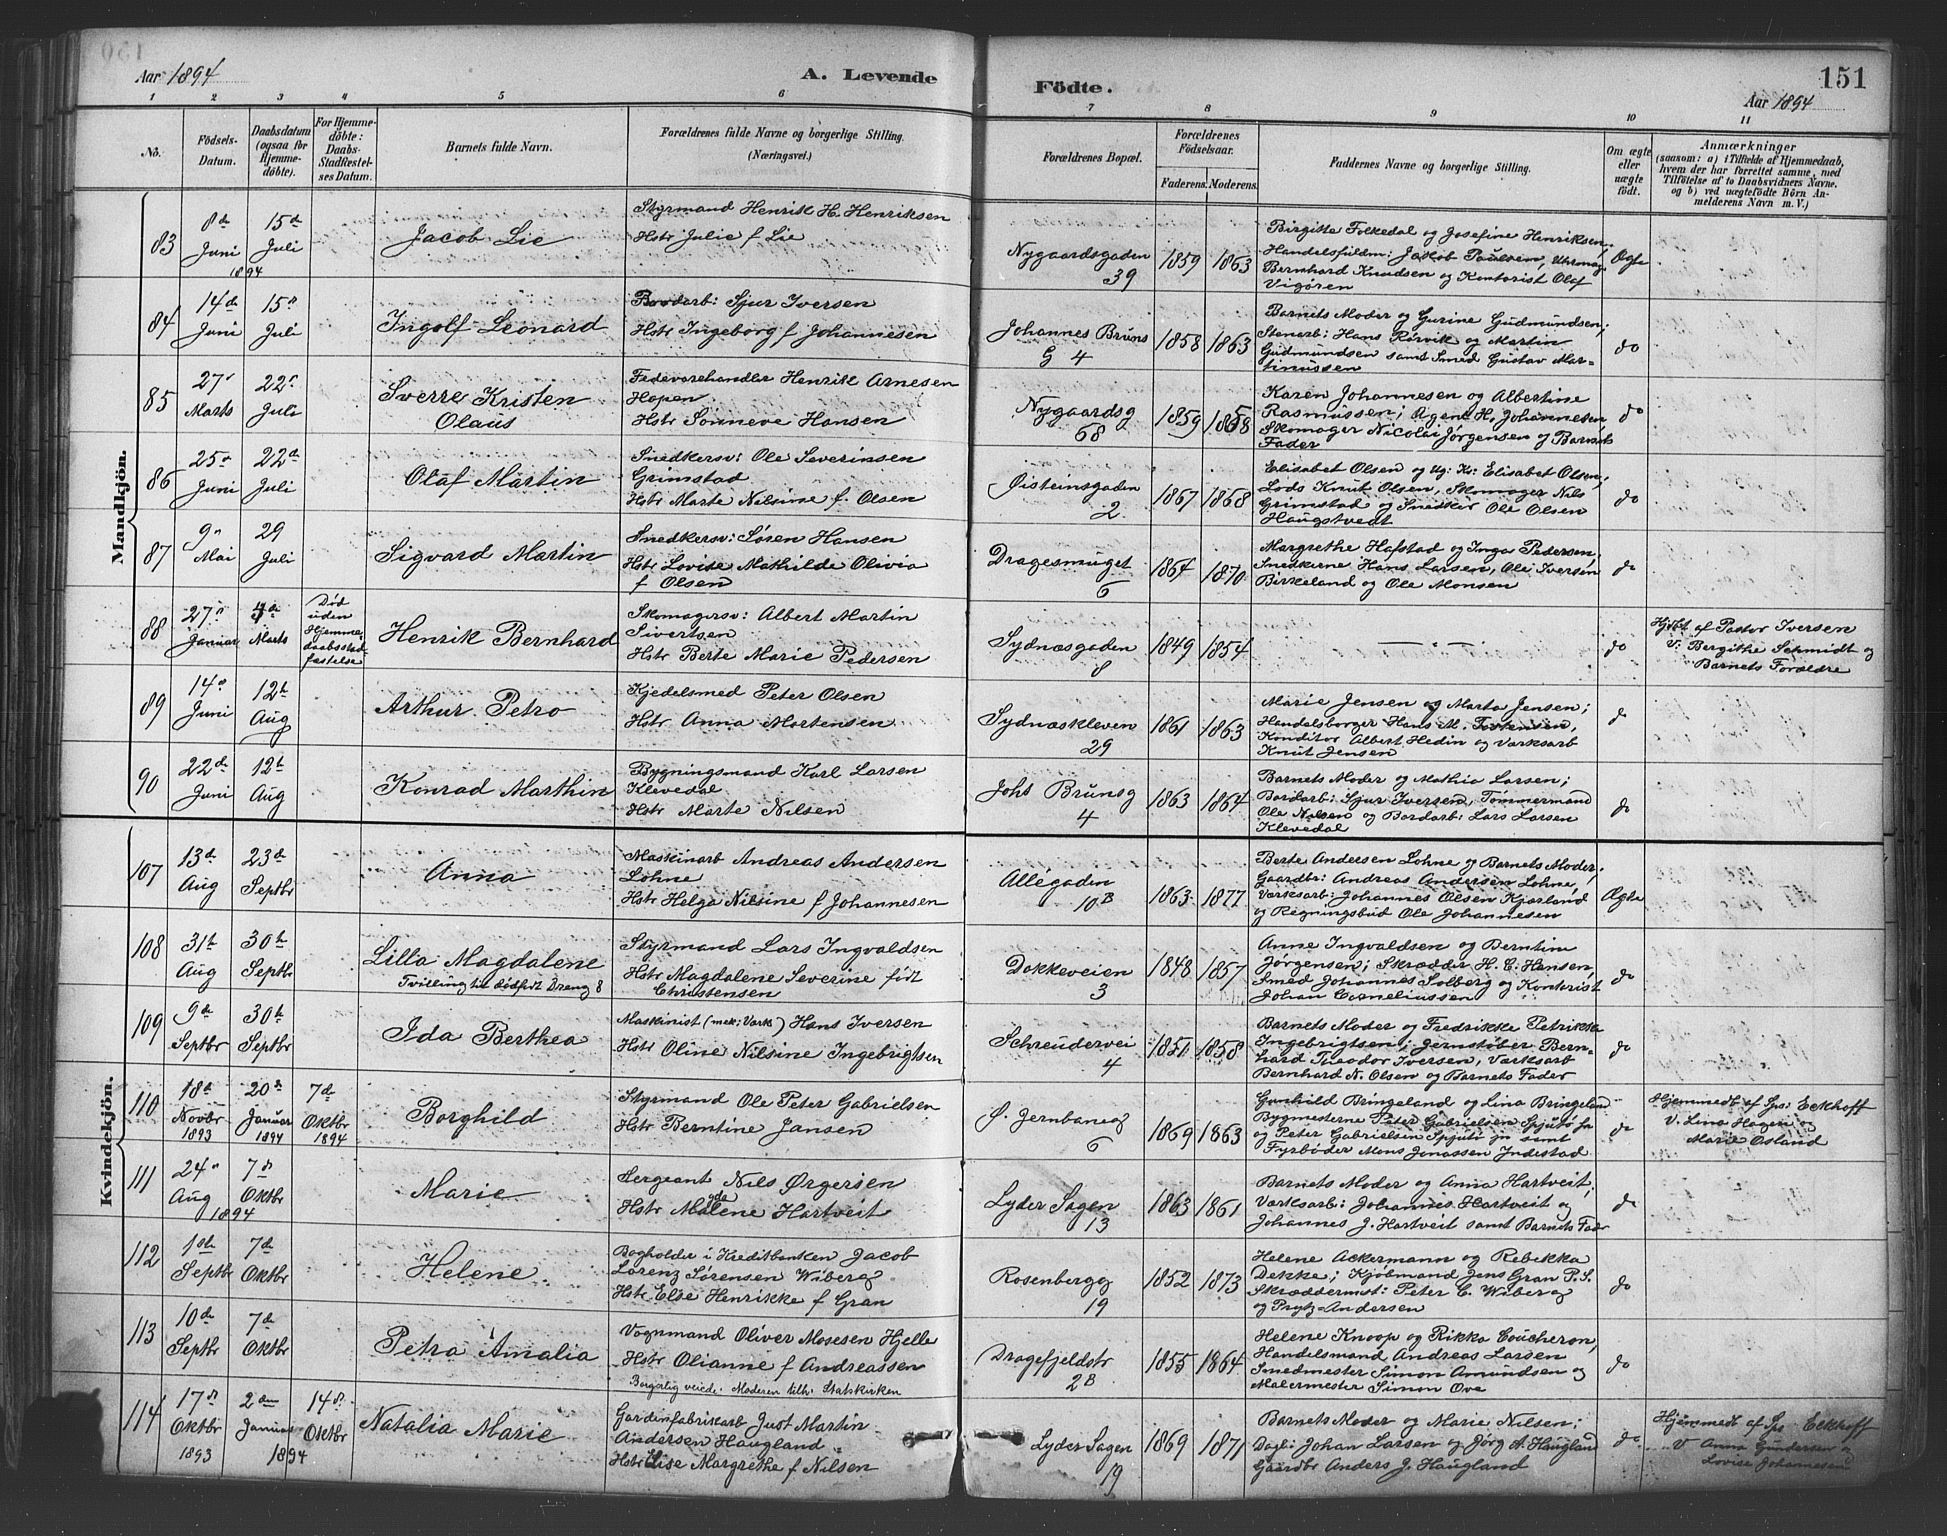 Aar 1894
A. Levende
Födte.
151
Aar 1894
1 2 3 4 5 6 7 8 9 10 11
No.
Födsels-
Datum.
Daabsdatum
(ogsaa for
Hjemme-
döbte).
For Hjemme-
döbte:
Daabs-
Stadfæstel-
ses Datum.
Barnets fulde Navn.
Forældrenes fulde Navne og borgerlige Stilling.
(Næringsvei.)
Forældrenes Bopæl.
Forældrenes
Födselsaar.
Faderens. Moderens.
Faddernes Navne og borgerlige Stilling.
Om ægte
eller
uægte
födt.
Anmærkninger
(saasom: a) i Tilfælde af Hjemmedaab,
hvem der har forrettet samme, med
Tilföielse af to Daabsvidners Navne.
og b) ved uægtefödte Börn An-
melderens Navn m. V.)
Mandkjön.
83
8de
Juni
1894
15de
Juli
Jacob Lie
Styrmand Henrik H. Henriksen
Hstr Julie f Lie
Nygaardsgaden
39
1859 1863
Birgitte Folkedal og Josefine Henriksen,
Handelsfuldm: Jakob Paulsen, Uhrmag
Bernhard Knudsen og Kontorist Olaf
Vigören
Ægte
84
14de
Juni
15n
Juli
Ingolf Leonard
Bordarb: Sjur Iversen
Hstr Ingeborg f Johannesen
Johannes Bruns
G 4
1858 1863
Barnets Moder og Gurine Gudmundsen;
Stenarb: Hans Rørvik og Martin
Gudmundsen samt Smed Gustav Mar-
tinussen
do
85
27n
Marts
22n
Juli
Sverre Kristen
Olaus
Fedevarehandler Henrik Arnesen
Hopen
Hstr Sønneve Hansen
Nygaardsg
68
1859 1858
Karen Johannesen og Albertine
Rasmussen; Agent H. Johannesen
Skomager Nicolai Jørgensen og Barnets
Fader
do
86
25n
Juni
22de
Juli
Olaf Martin
Snedkersv: Ole Severinsen
Grimstad
Hstr Marte Nilsine f. Olsen
Øisteinsgaden
2
1867 1868
Elisabet Olsen og Ug: Kv: Elisabet Olsen,
Lods Knut Olsen, Skomager Nils
Grimstad og Snedker Ole Olsen
Haugstvedt
do
87
9n
Mai
29
Juli
Sigvard Martin
Snedkersv: Søren Hansen
Hstr Lovise Mathilde Olivia
f Olsen
Dragesmuget
6
1864 1870
Margrethe Hafstad og Inga Pedersen,
Snedkerne Hans Larsen, Ole Iversen
Birkeland og Ole Monsen
do
88
27n
Januar
Marts
Død
uden
Hjemme-
daabsstad-
fæstelse
Henrik Bernhard
Skomagersv: Albert Martin
Sivertsen
Hstr Berte Marie Pedersen
Sydnæsgaden
8
1849 1854
do
Hjdbt af Pastor Iversen
V: Bergithe Schmidt og
Barnets Forældre
89
14n
Juni
12te
Aug
Arthur Petro
Kjedelsmed Peter Olsen
Hstr Anna Mortensen
Sydnæskleven
29
1861 1863
Marie Jensen og Marta Jensen;
Handelsborger Hans M. Torstensen,
Konditor Albert Hedin og Værksarb
Knut Jensen
do
90
22de
Juni
12te
Aug
Konrad Marthin
Bygningsmand Karl Larsen
Klevedal
Hstr Marte Nilsen
Johs Brunsg
4
1863 1864
Barnets Moder og Mathia Larsen;
Bordarb: Sjur Iversen, Tømmermand
Ole Nilsen og Bordarb: Lars Larsen
Klevedal
do
Kvindekjön.
107
13de
Aug
23de
Septbr
Anna
Maskinarb Andreas Andersen
Lohne
Hstr Helga Nilsine f Johannesen
Allégaden
10B
1863 1877
Berte Andersen Lohne og Barnets Moder;
Gaardbr: Andreas Andersen Lohne,
Værksarb: Johannes Olsen Kjøsland
og Regningsbud Ole Johannesen
Ægte
108
31te
Aug
30te
Septbr
Lilla Magdalene
Tvilling til dødfødt Dreng 8
Styrmand Lars Ingvaldsen
Hstr Magdalene Severine født
Christensen
Dokkeveien
3
1848 1857
Anne Ingvaldsen og Berntine
Jørgensen; Skrædder H. C. Hansen,
Smed Johannes Solberg og Kontorist
Johan Corneliussen
do
109
9de
Septbr
30te
Septbr
Ida Berthea
Maskinist (mek: Værk) Hans Iversen
Hstr Oline Nilsine Ingebrigtsen
Schreudervei
4
1851 1858
Barnets Moder og Fredrikke Petrikka
Ingebrigtsen; Jernstøber Bern-
hard Theodor Iversen, Værksarb
Bernhard N. Olsen og Barnets Fader
do
110
18de
Novbr
1893
20de
Januar
1894
7de
Oktbr
1894
Borghild
Styrmand Ole Peter Gabrielsen
Hstr Berntine Jansen
Ø. Jernbaneg
6
1869 1863
Gunhild Bringeland og Lina Bringeland
Bygmesterne Peter Gabrielsen Spjutø sr
og Peter Gabrielsen Spjutø jr samt
Fyrbøder Mons Jonassen Indestad
do
Hjemmedt af Sps: Eckhoff
V. Lina Hagen og
Marie Østand
111
24n
Aug
1894
7n
Oktbr
Marie
Sergeant Nils Ørgersen
Hstr Malene Hartveit
Lyder Sagen
13
1863 1861
Barnets Moder og Anna Hartveit;
Værksarb: Johannes Hartveit og
Johannes J. Hartveit samt Barnets Fader
do
112
1ste
Septbr
7de
Oktbr
Helene
Bogholder i Kreditbanken Jacob
Lorenz Sørensen Wiberg
Hstr Else Henrikke f Gran
Rosenbergg
19
1852 1873
Helene Ackermann og Rebekka
Dekke; Kjøbmand Jens Gran P.S.
Skræddermst: Peter C. Wiberg
og Prytz-Andersen
do
113
10de
Septbr
7de
Oktbr
Petra Amalia
Vognmand Oliver Mosesen Hjelle
Hstr Olianne f Andreassen
Borgerlig veiede. Moderen tilh: Statskirken
Dragefjeldstr
2B
1855 1864
Helene Knoop og Rikka Coucheron,
Handelsmand Andreas Larsen
Smedmester Simon Amundsen og
Malermester Simon Ove
do
114
17n
Oktbr
1893
2den
Januar
1894
14n
Oktbr
Natalia Marie
Gardinfabrikarb Just Martin
Andersen Haugland
Hstr Elise Margrethe f Nilsen
Lyder Sagen
19
1869 1871
Barnets Moder og Marie Nilsen;
Dagl: Johan Larsen og Jørg A. Haugland
Gaardbr Anders J. Haugland
do
Hjemmedt af Sps Eckhoff
V Anna Gundersen og
Lovise Johannesen